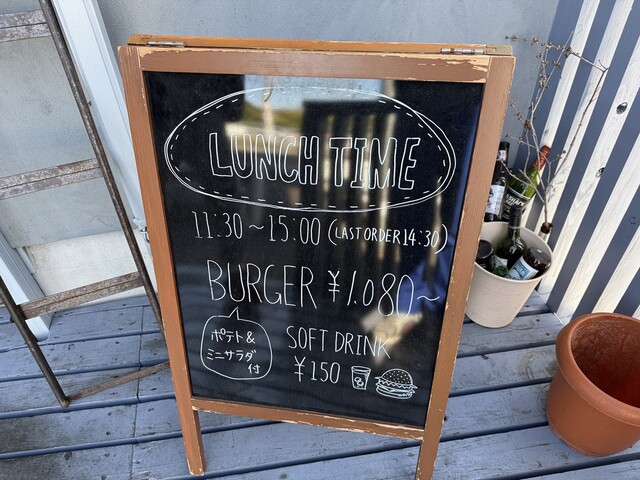 LUNCH TIME
11:30~15:00 (LAST ORDER 14:30)
BURGER ¥1.080~
ポテト&
ミニサラダ
付
SOFT DRINK
¥150